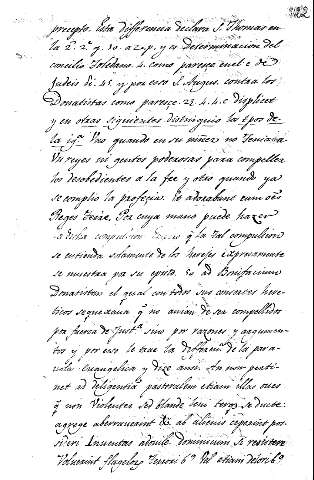 122
precepto. Esta differencia declara S. Thomas en
la 2.ª 2.ª q. 10. a 2. p. y es Determinacion del
concilio Toledano 4. como parece en el c. de
Judeis Di. 45 y por eso S. Augus. contra los
Donatistas como paresce 23. 4. c. Duplicer
y en otras siguientes distinguio los tpos. de
la yg.ª Uno quando en su niñez no Tenia
Vn reyes ni gentes poderosas para compeller
los desobedientes a la fee y otro quando ya
se complio la profecia. Et adorabunt eum oẽs
Reges terre. Por cuya mano puede hazer
dicha compulsion q̃ la tal compulsion
se entienda solamente de los herejes expresamente
se muestra pa su epist. 50 ad Bonifacium
Donatistam el qual con todos sus consortes here
ticos se quexava q̃ no avian de ser compellidos
por fuerza de Just.ª sino por razones y argumen-
tos y por eso le trae la de la para-
vola Euangelica y dize ansi. An non perti-
net ad diligentiam pastoralem etiam illas oues
q̃ non Violenter sed blande
a grege aberraverant &c. ab alienis ceperint pos-
sideri Inventas dominicum si resistere
Voluerint flagelor. Terrori b.º Vel etiam dolori b.º